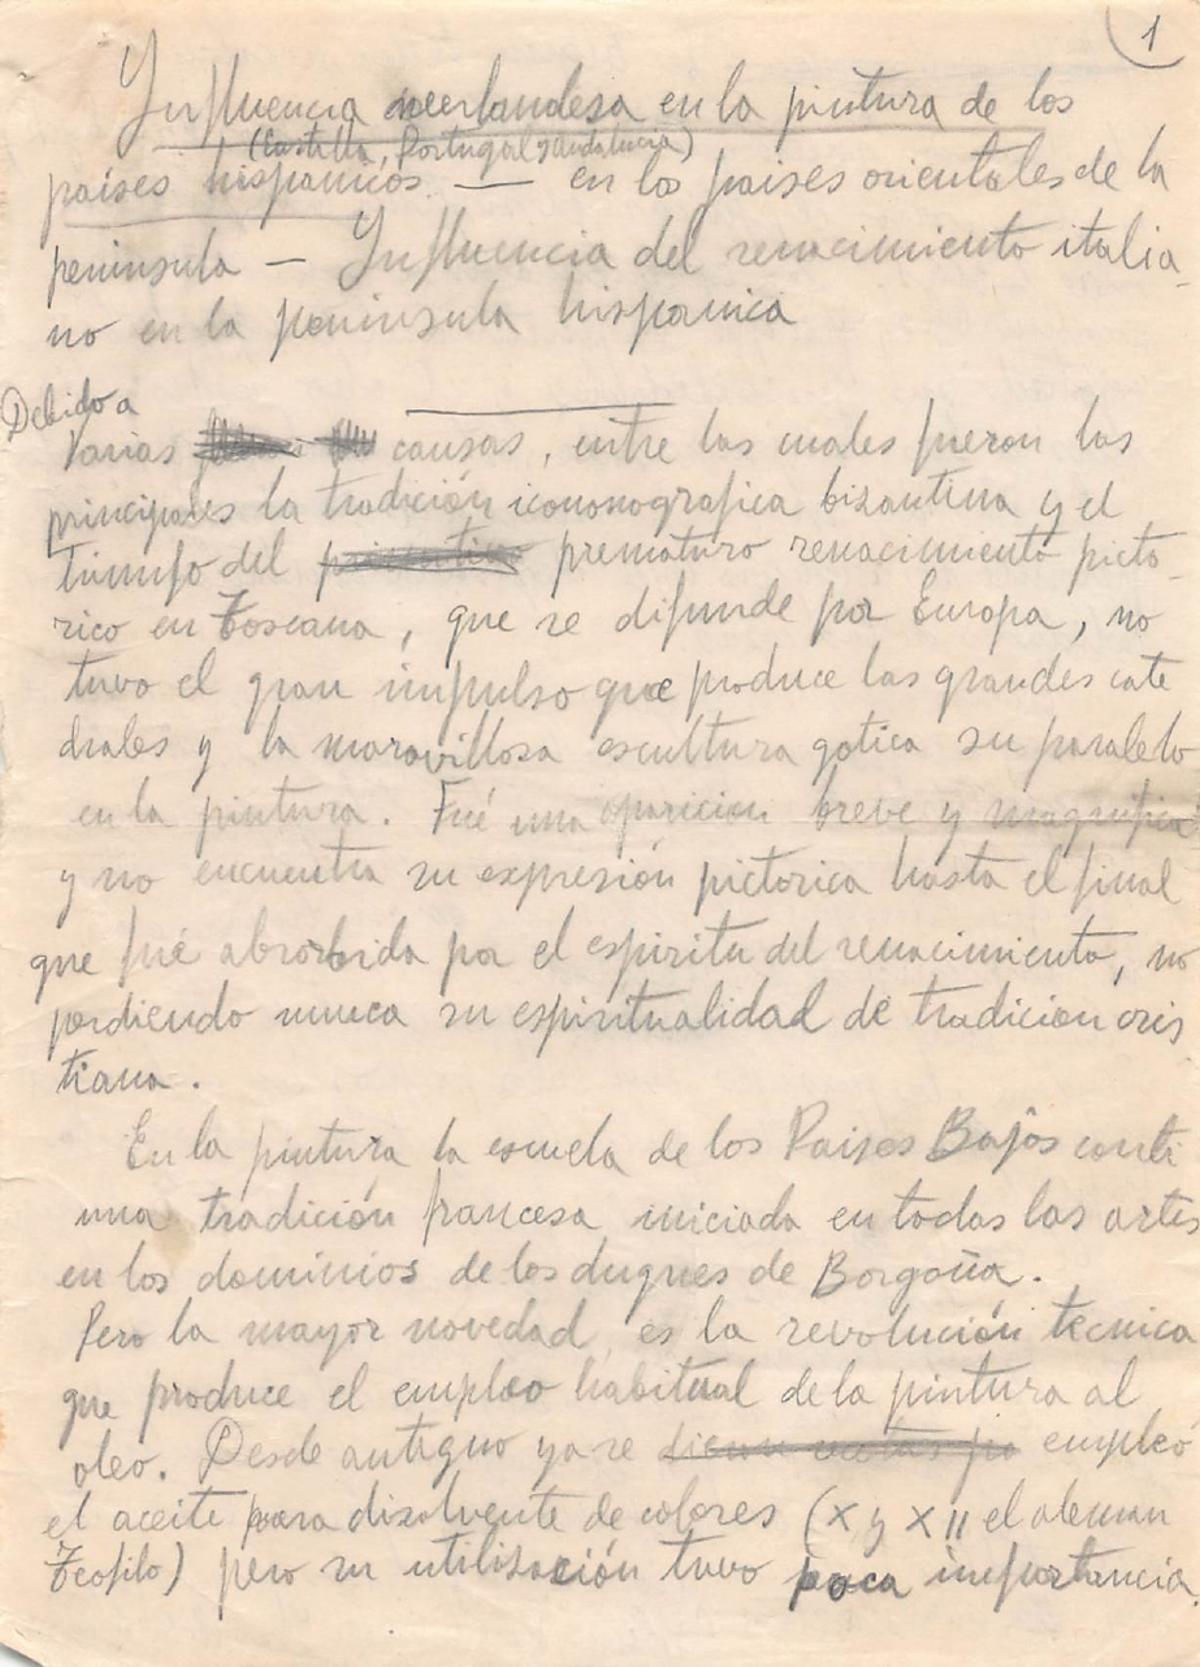 1
Influencia neerlandesa en la pintura de los
(Castilla, Portugal y andalucia)
paises hispanicos — en los paises orientales de la
peninsula — Influencia del renacimiento italia
no en la peninsula hispanica
Debido a
Varias causas, entre las cuales fueron las
principales la tradición iconografica bizantina y el
triunfo del prematuro renacimiento picto
rico en Toscana, que se difunde por Europa, no
tuvo el gran impulso que produce las grandes cate
drales y la maravillosa escultura gotica su paralelo
en la pintura. Fué una aparicion breve y magnifica
y no encuentra su expresión pictorica hasta el final
que fué absorbida por el espiritu del renacimiento, no
perdiendo nunca su espiritualidad de tradicion cris
tiana.
En la pintura la escuela de los Paises Bajos conti
nua tradición francesa iniciada en todas las artes
en los dominios de los duques de Borgoña.
Pero la mayor novedad es la revolución tecnica
que produce el empleo habitual de la pintura al
oleo. Desde antiguo ya se empleó
el aceite para disolvente de colores (X y XII el aleman
Teofilo) pero su utilización tuvo poca importancia.